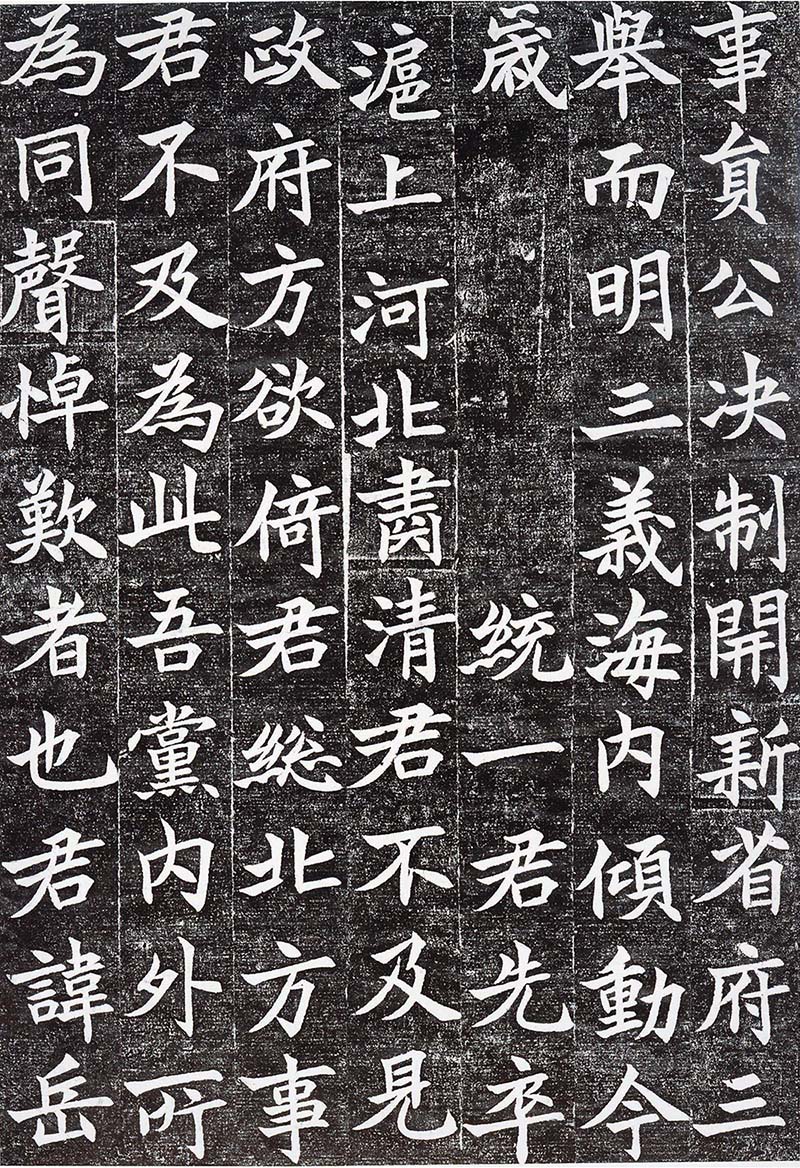 事貟公决制開新省府三
舉而明三義海内傾動今
歲 統一君先卒
滬上河北肅清君不及見
政府方欲倚君総北方事
君不及為此吾黨内外所
為同聲悼歎者也君諱岳